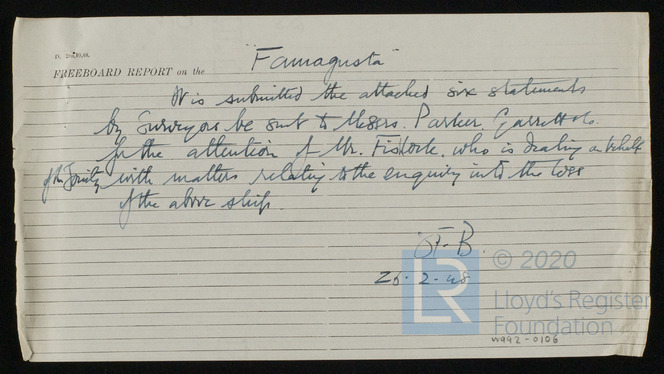 FREEBOARD REPORT on the "Famagusta"
It is submitted the attached six statements
by Surveyors be sent to Messrs. Parker, Garrett & Co.
for the attention of Mr. who is dealing on behalf
of the Society with matters relating to the enquiry into the loss
of the above ship.
F.B.
26.2.48
LR
© 2020
Lloyd's Register
Foundation
W992-0106